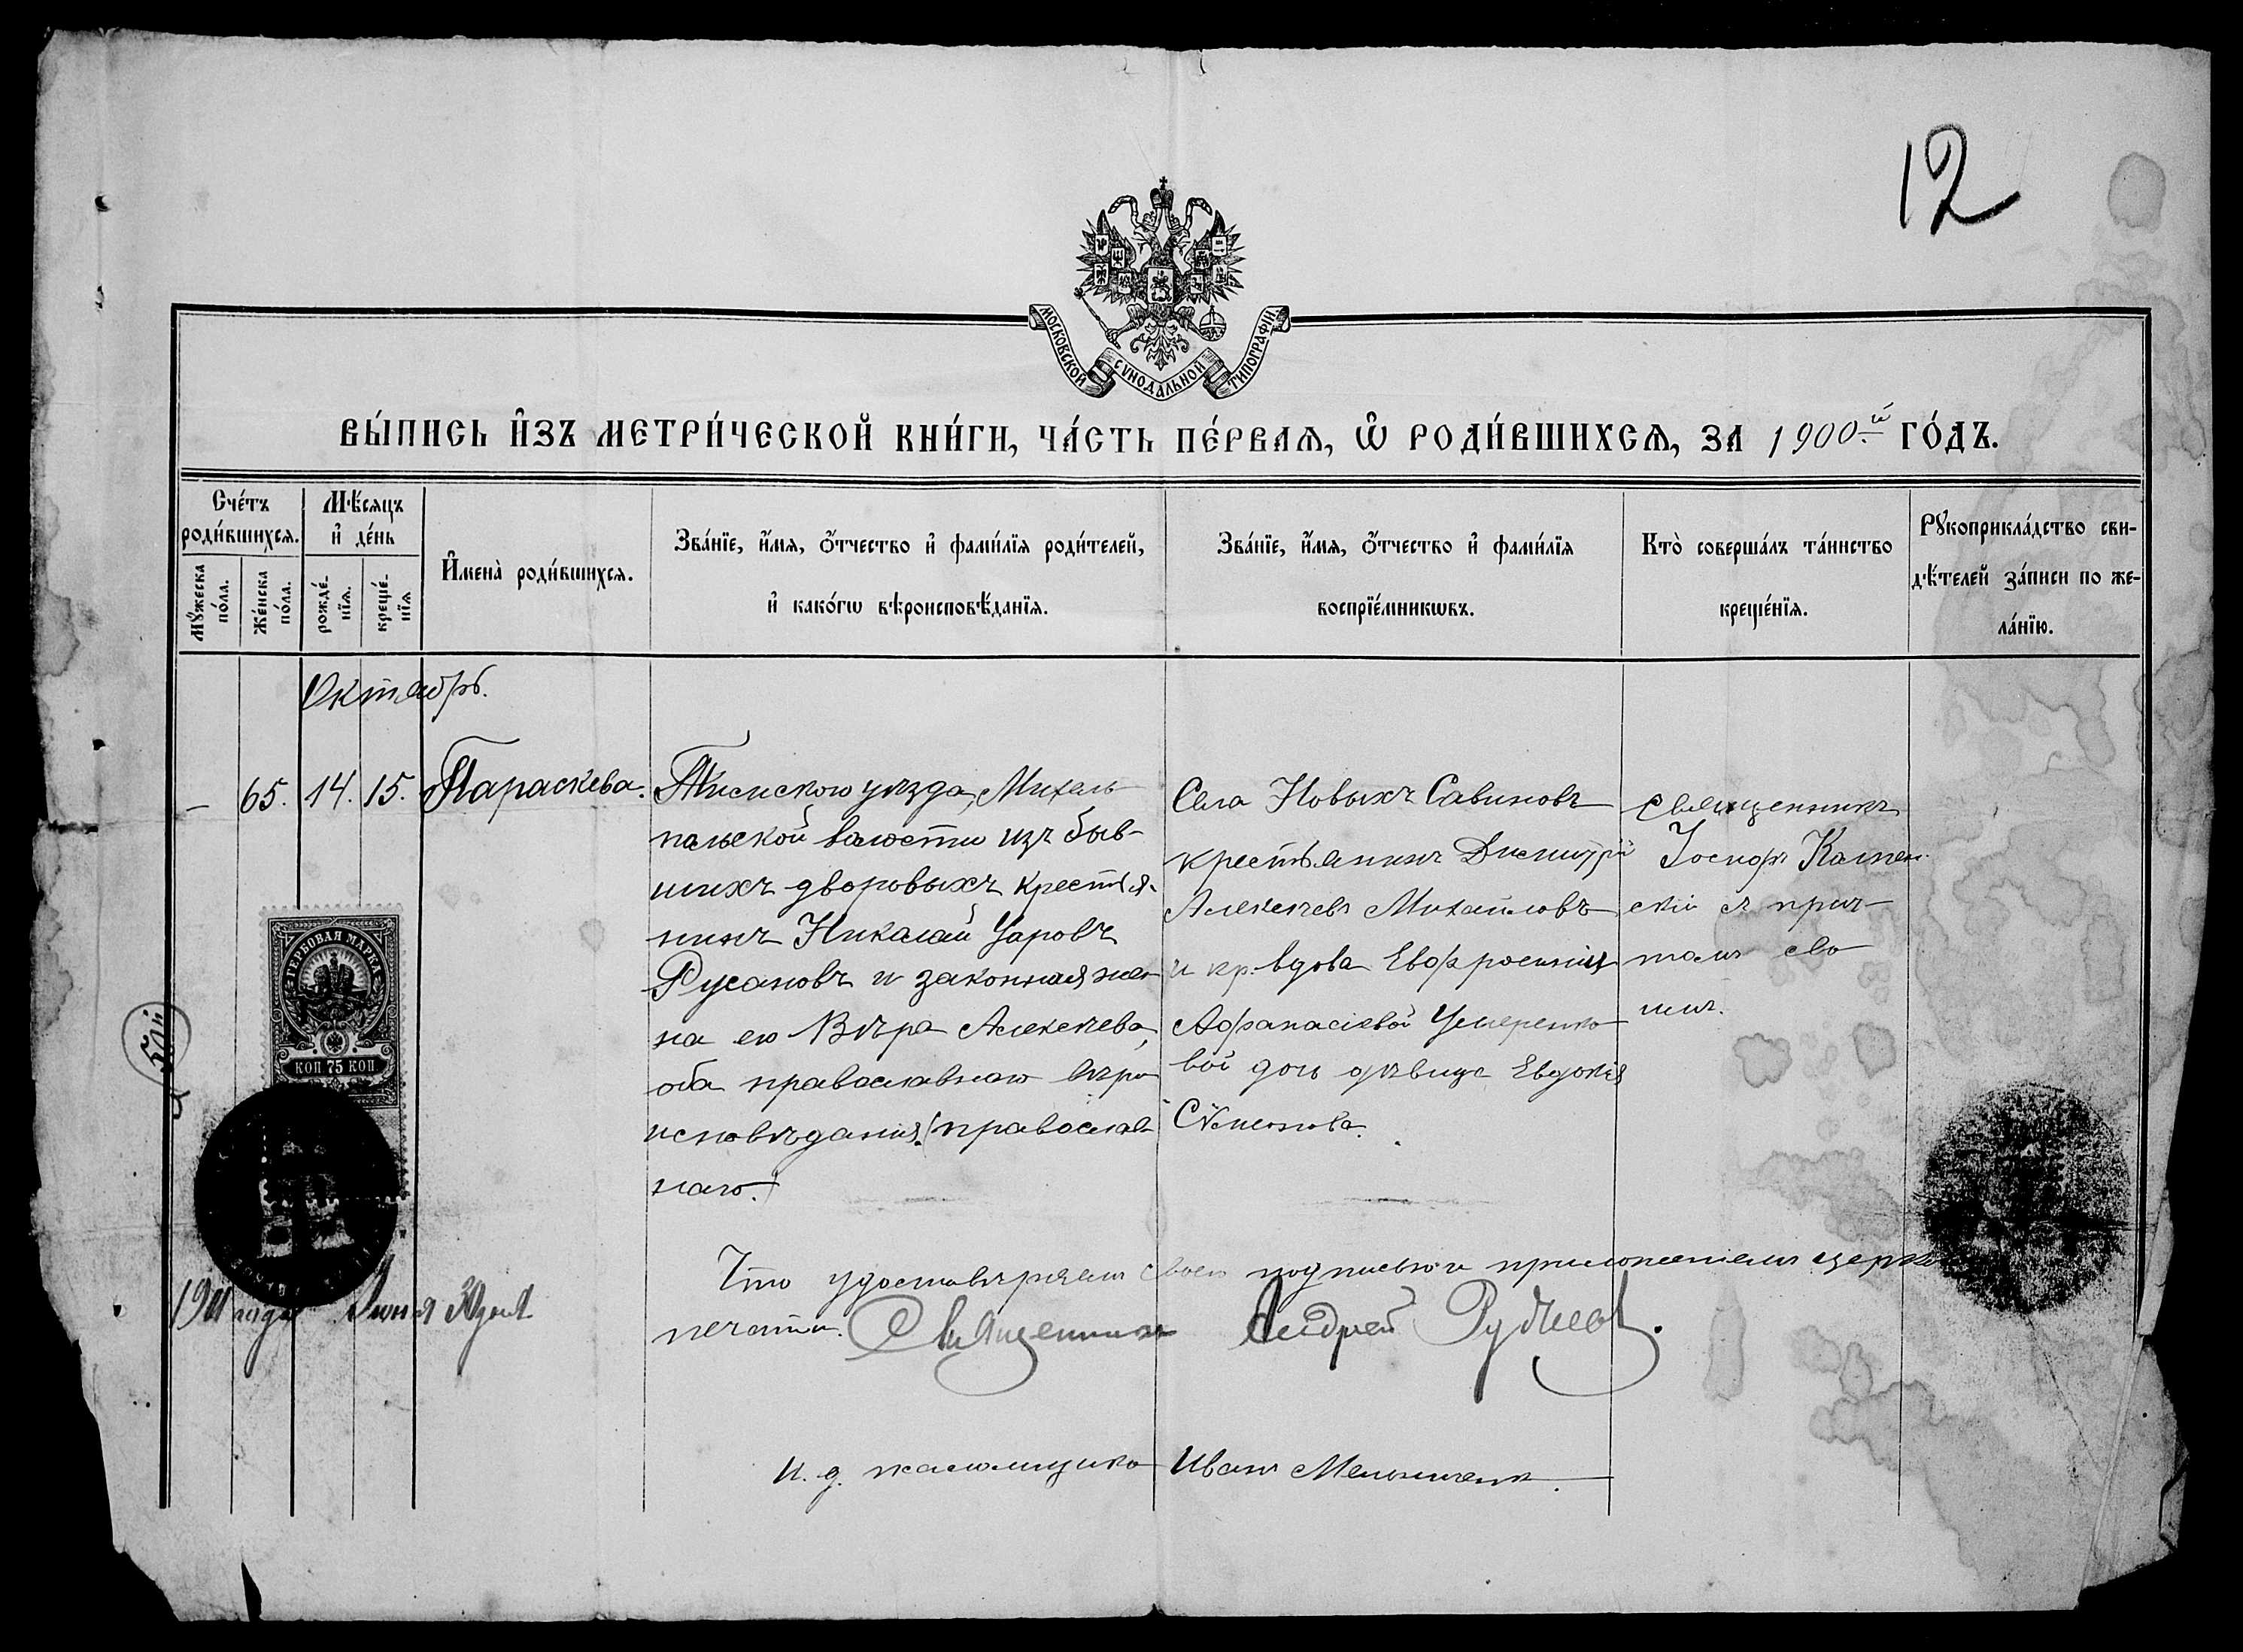 12
МОСКОВСКОЙ СѴНОДАЛЬНОЙ ТИПОГРАФІИ
ВЫ́ПИСЬ И҆ЗЪ МЕТРИ́ЧЕСКОЙ КНИ́ГИ, ЧА́СТЬ ПЕ́РВАЯ, Ѡ҆ РОДИ́ВШИХСЯ, ЗА 1900.й ГО́ДЪ.
Сче́тъ роди́вшихся.
Мꙋ́жеска по́ла.
Же́нска по́ла.
Мѣ́сяцъ и҆ де́нь
рожде́-нїя.
креще́-нїя
И҆мена̀ роди́вшихся.
Зва́нїе, и҆́мя, ѻ҆́тчество и҆ фами́лїя роди́телей,
и҆ како́гѡ вѣроисповѣ́данїя.
Зва́нїе, и҆́мя, ѻ҆́тчество и҆ фами́лїя
воспрїе́мникѡвъ.
Кто̀ соверша́лъ та́инство
креще́нїя.
Рꙋкоприкла́дство сви-
дѣ́телей за́писи по же-
ла́нїю.
Октябрь.
– 65. 14. 15. Параскева.
уѣзда, Михель-
польской волости изъ быв-
шихъ дворовыхъ крестья-
нинъ Николай Уаровъ
Русановъ и законная же-
на его Вѣра Алексѣева,
оба православнаго вѣро-
исповѣданія. (православ-
наго.)
Села Новыхъ Савиновъ
крестьянинъ Димитрій
Алексѣевъ Михайловъ
и кр. вдова Евфросиніи
Афанасіевой
вой дочь дѣвица Евдокія
Сѵмеонова.
Священникъ
Іосифъ Камен-
скій съ прич-
томъ сво-
имъ.
ГЕРБОВАЯ МАРКА
КОП 75 КОП
Что удостовѣряемъ своею подписью и приложеніемъ церко
печати. Священникъ Андрей Руднев.
года Іюня 30 дня
И. д. псаломщика Иванъ